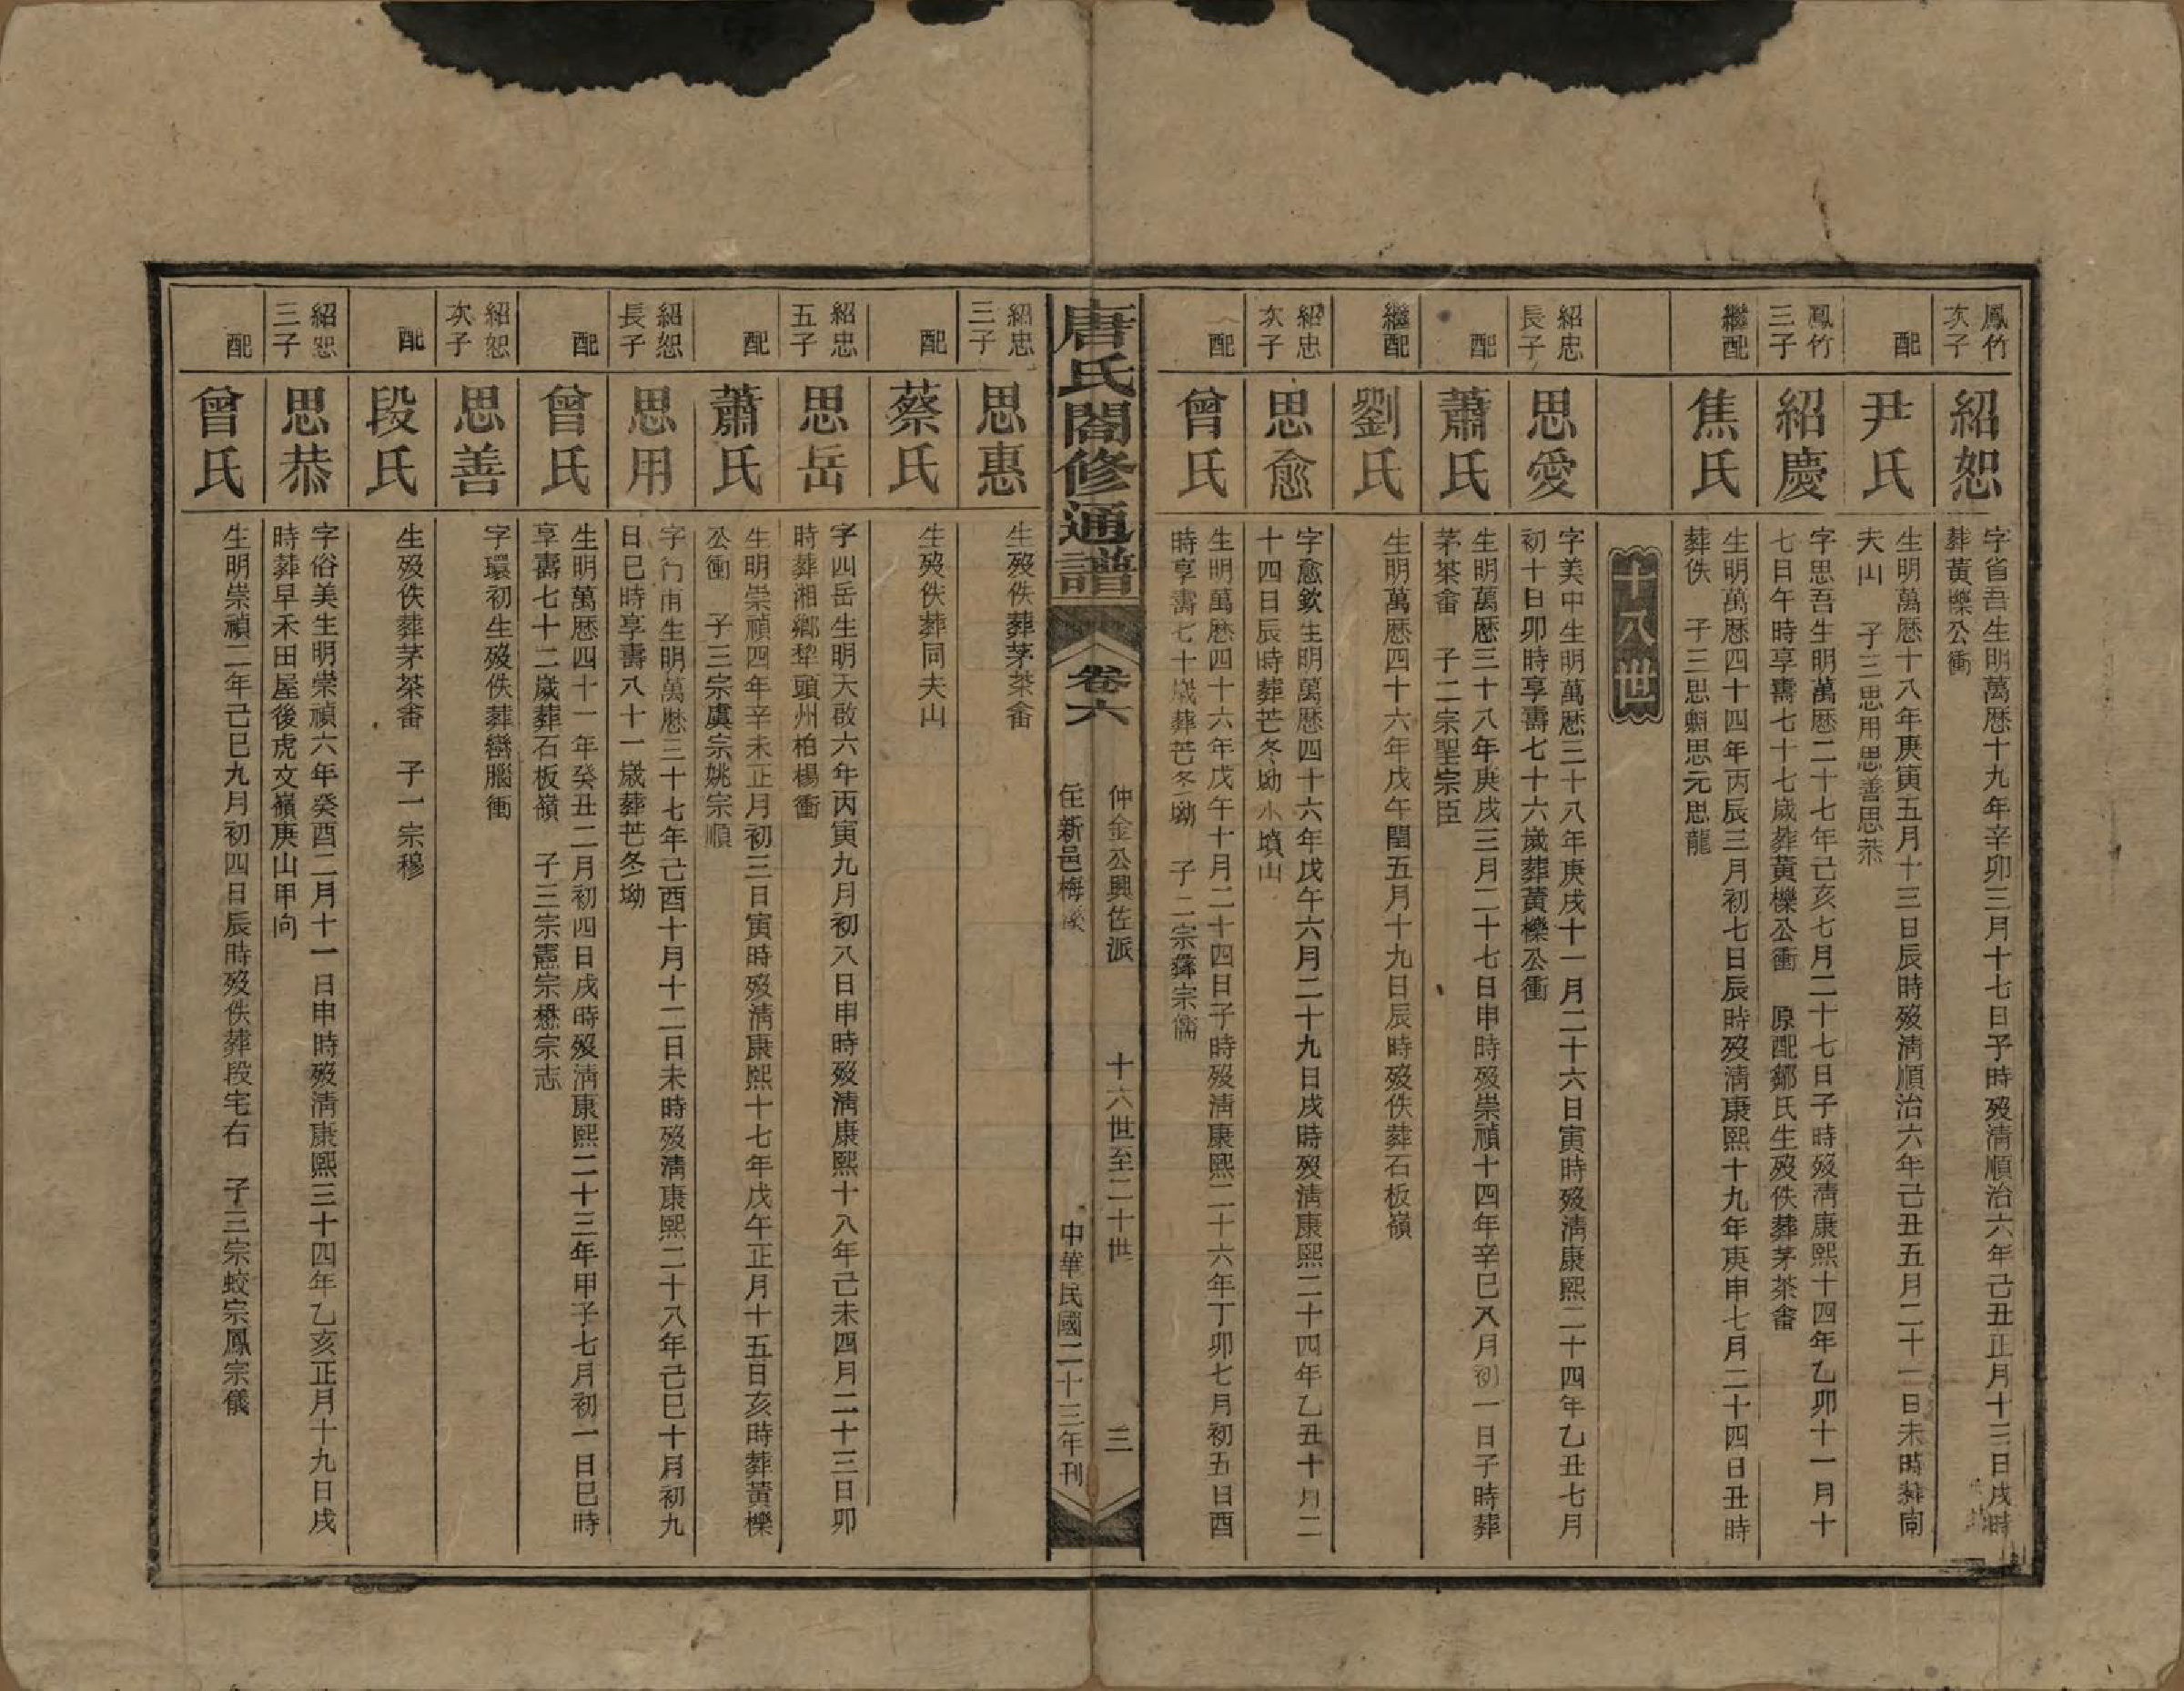 鳳竹
次子
紹恕
字省吾生明萬歷十九年辛卯三月十七日子時歿淸順治六年己丑正月十三日戌時
葬黃櫟公衝
配
尹氏
生明萬歷十八年庚寅五月十三日辰時歿淸順治六年己丑五月二十一日未時葬南
夫山　子三思用思善思恭
鳳竹
三子
紹慶
字思吾生明萬歷二十七年己亥七月二十七日子時歿淸康熙十四年乙卯十一月十
七日午時享壽七十七歲葬黃櫟公衝　原配鄒氏生歿佚葬茅茶畲
繼配
焦氏
生明萬歷四十四年丙辰三月初七日辰時歿淸康熙十九年庚申七月二十四日丑時
葬佚　子三思魁思元思龍
十八世
紹忠
長子
思愛
字美中生明萬歷三十八年庚戌十一月二十六日寅時歿淸康熙二十四年乙丑七月
初十日卯時享壽七十六歲葬黃櫟公衝
配
蕭氏
生明萬歷三十八年庚戌三月二十七日申時歿崇禎十四年辛巳八月初一日子時葬
茅茶畲　子二宗聖宗臣
繼配
劉氏
生明萬歷四十六年戊午閏五月十九日辰時歿佚葬石板嶺
紹忠
次子
思愈
字愈欽生明萬歷四十六年戊午六月二十九日戌時歿淸康熙二十四年乙丑十月二
十四日辰時葬芒冬坳水墳山
配
曾氏
生明萬歷四十六年戊午十月二十四日子時歿淸康熙二十六年丁卯七月初五日酉
時享壽七十歲葬芒冬坳　子二宗彝宗儒
唐氏閤修通譜
卷六
仲金公興佐派
住新邑梅溪
十六世至二十世
三
中華民國二十三年刊
紹忠
三子
思惠
生歿佚葬茅茶畲
配
蔡氏
生歿佚葬同夫山
紹忠
五子
思岳
字四岳生明天啟六年丙寅九月初八日申時歿淸康熙十八年己未四月二十三日卯
時葬湘鄉犂頭州柏楊衝
配
蕭氏
生明崇禎四年辛未正月初三日寅時歿淸康熙十七年戊午正月十五日亥時葬黃櫟
公衝　子三宗虞宗姚宗順
紹恕
長子
思用
字行甫生明萬歷三十七年己酉十月十二日未時歿淸康熙二十八年己巳十月初九
日巳時享壽八十一歲葬芒冬坳
配
曾氏
生明萬歷四十一年癸丑二月初四日戌時歿淸康熙二十三年甲子七月初一日巳時
享壽七十二歲葬石板嶺　子三宗憲宗懋宗志
紹恕
次子
思善
字環初生歿佚葬巒腦衝
配
段氏
生歿佚葬茅茶畲　子一宗穆
紹恕
三子
思恭
字俗美生明崇禎六年癸酉二月十一日申時歿淸康熙三十四年乙亥正月十九日戌
時葬早禾田屋後虎文嶺庚山甲向
配
曾氏
生明崇禎二年己巳九月初四日辰時歿佚葬段宅右　子三宗蛟宗鳳宗儀